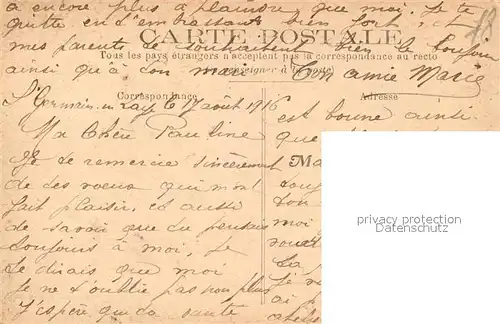 a encore plus à plaindre que moi. Je te
quitte en t'embrassant bien fort, et
mes parents te souhaitent bien le bonjour
CARTE POSTALE
Tous les pays étrangers n'acceptent pas la correspondance au recto
ainsi qu'à ton Ton amie Marie
Correspondance Adresse
St Germain en Laye le 17 août 1916
Ma Chère Pauline
Je te remercie sincèrement
de tes voeux qui m'ont
fait plaisir, et aussi
de savoir que tu pensais
toujours à moi, je
te dirais que moi
je ne t'oublie pas non plus
J'espère que ta santé
est bonne ainsi
que
Ma
ton
moi
La
privacy protection
watermark